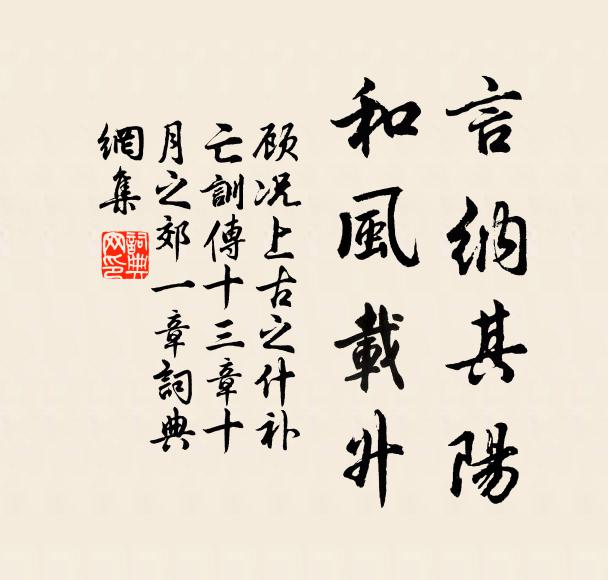 言納其陽
和風載升
顾况上古之什补
亡訓傳十三章十
月之郊一章詞典
網集
詞典網印